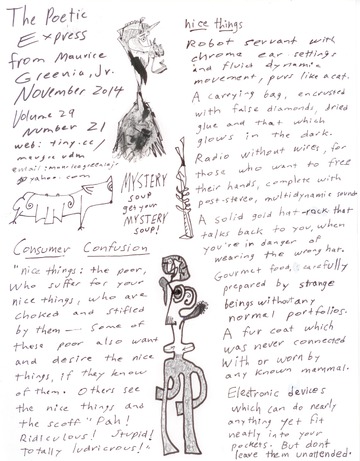 The Poetic
Express
from Maurice
Greenia, Jr.
November 2014
Volume 29
Number 21
web: tiny.cc/
email: mauricegreeniajr
@yahoo.com
MYSTERY
soup
get your
MYSTERY
SOUP!
Consumer Confusion
"nice things: the poor,
who suffer for your
nice things, who are
choked and stifled
by them — Some of
these poor also want
and desire the nice
things, if they know
of them. Others see
the nice things and
the scoff "Pah!
Ridiculous! Stupid!
Totally ludricrous!"
nice things
Robot servant with
chrome ear settings
and fluid dynamic
movement, purs like a cat.
A carrying bag, encrusted
with false diamonds, dried
glue and that which
glows in the dark.
Radio without wires, for
those who want to free
their hands, complete with
post-stereo, multidynamic sound
A solid gold hat that
talks back to you, when
you're in danger of
wearing the wrong hat.
Gourmet food, carefully
prepared by strange
beings without any
normal portfolios.
A fur coat which
was never connected
with or worn by
any known mammal.
Electronic devices
which can do nearly
anything yet fit
neatly into your
pockets. But dont
leave them unattended.